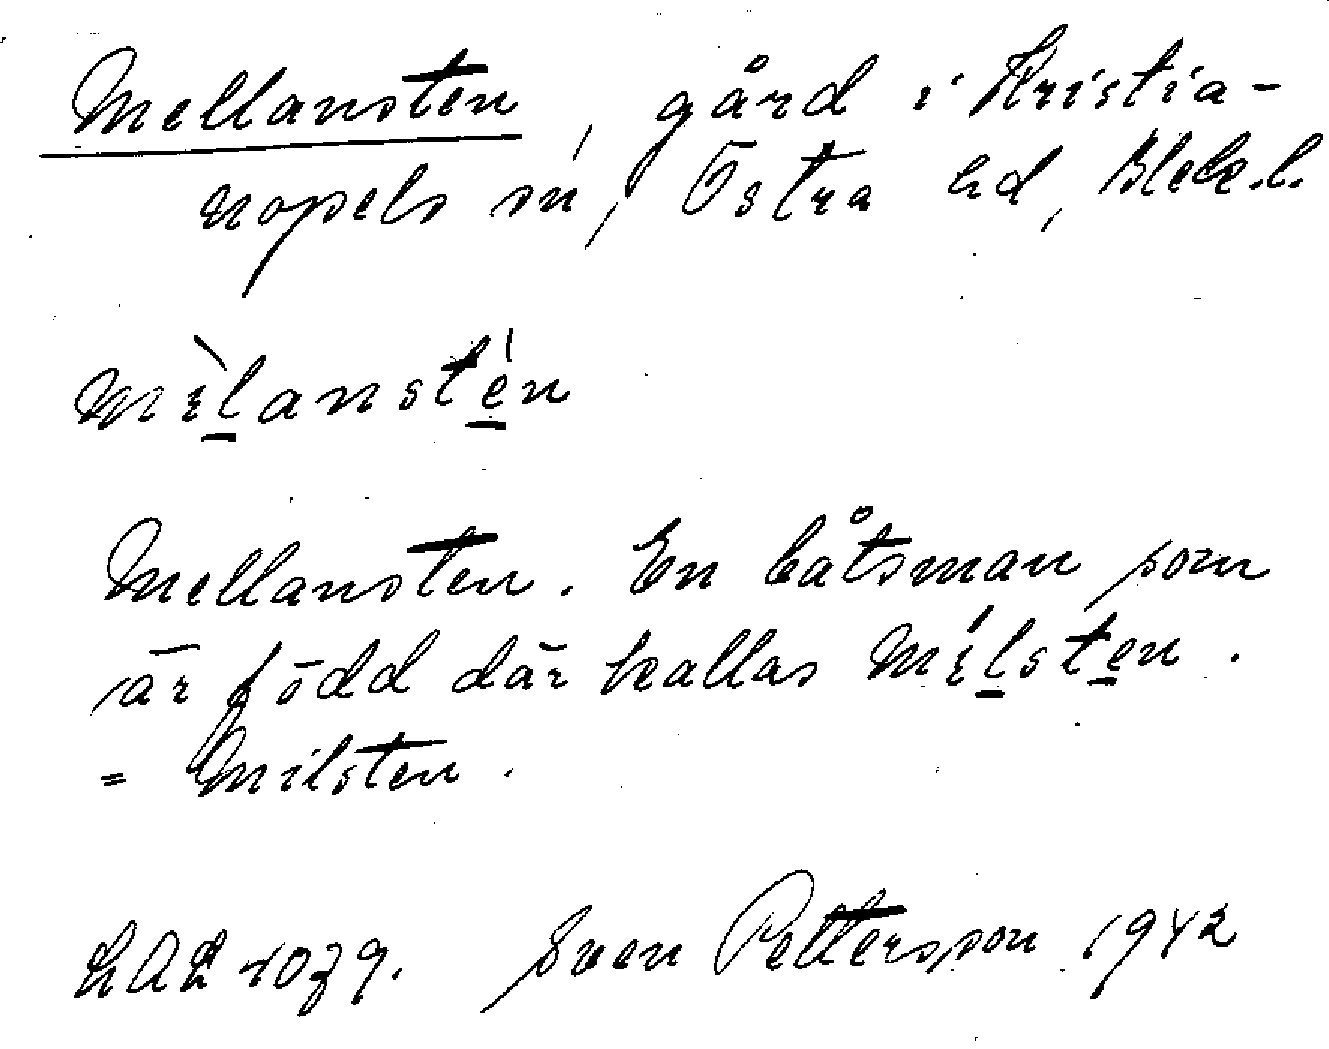 Mellansten, gård i Kristia-
nopels sn, Östra hd, Blek.l.
mìlanstén
Mellansten. En båtsman som
är född där kallas Mílsten.
= Milsten.
LAL 1079. Sven Pettersson 1942